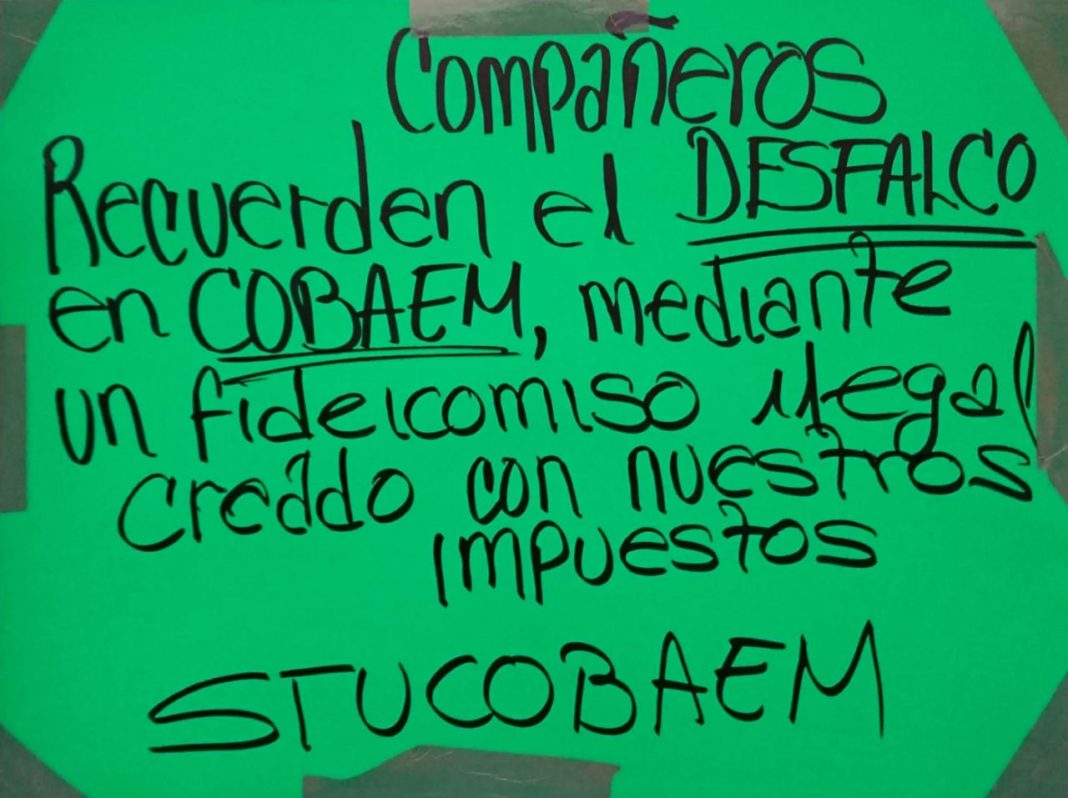 Compañeros
Recuerden el DESFALCO
en COBAEM, mediante
un fideicomiso ilegal
creado con nuestros
impuestos
STUCOBAEM